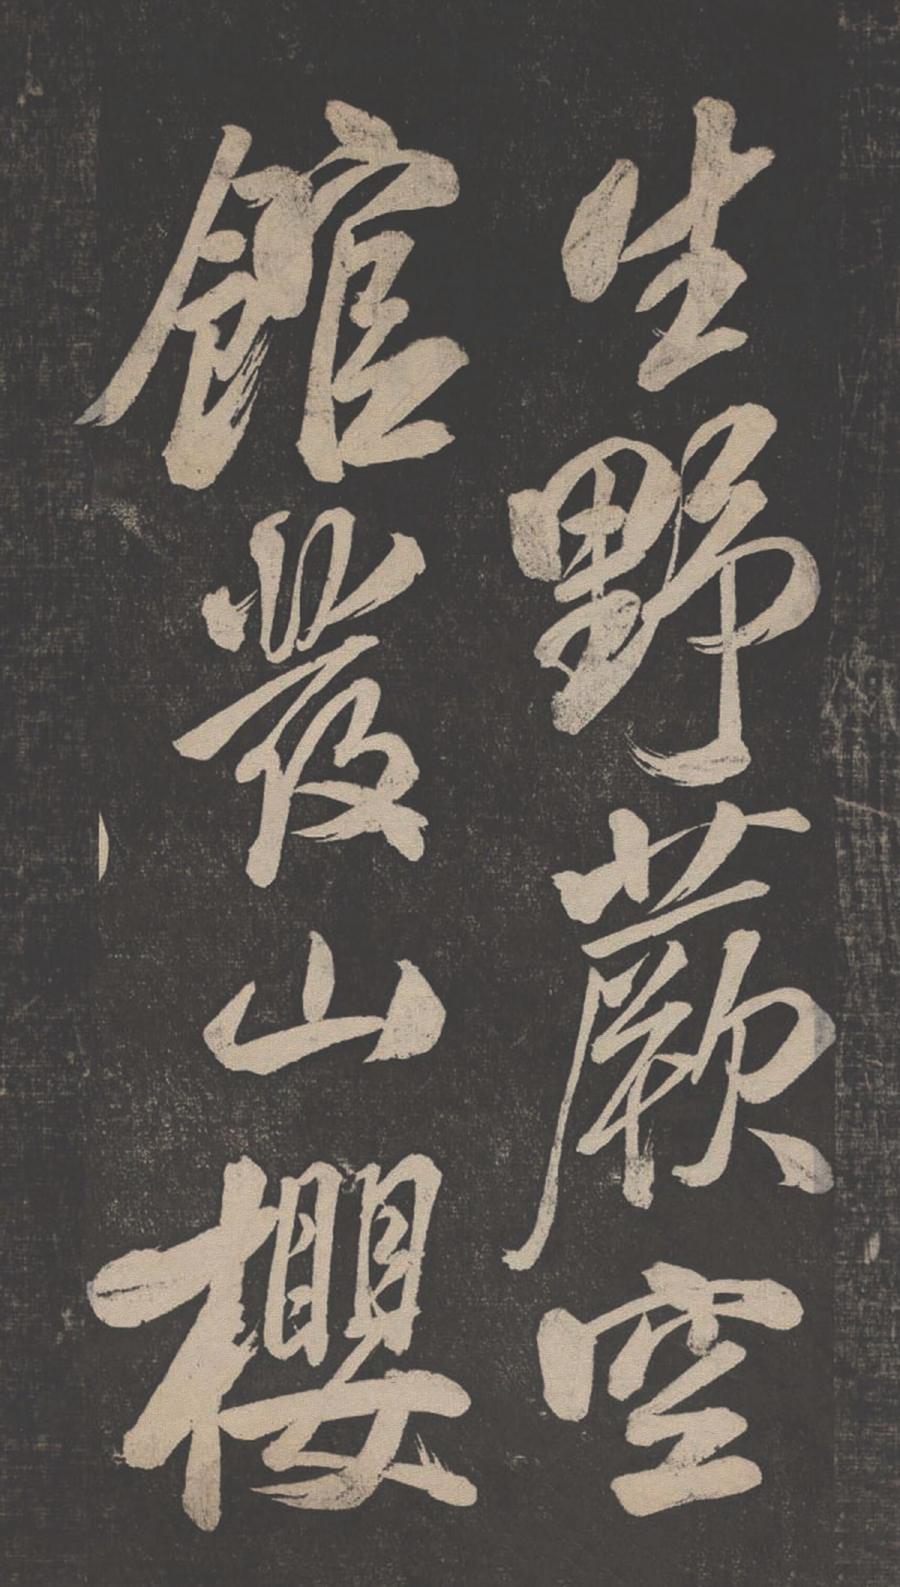 生野蕨空
館發山櫻